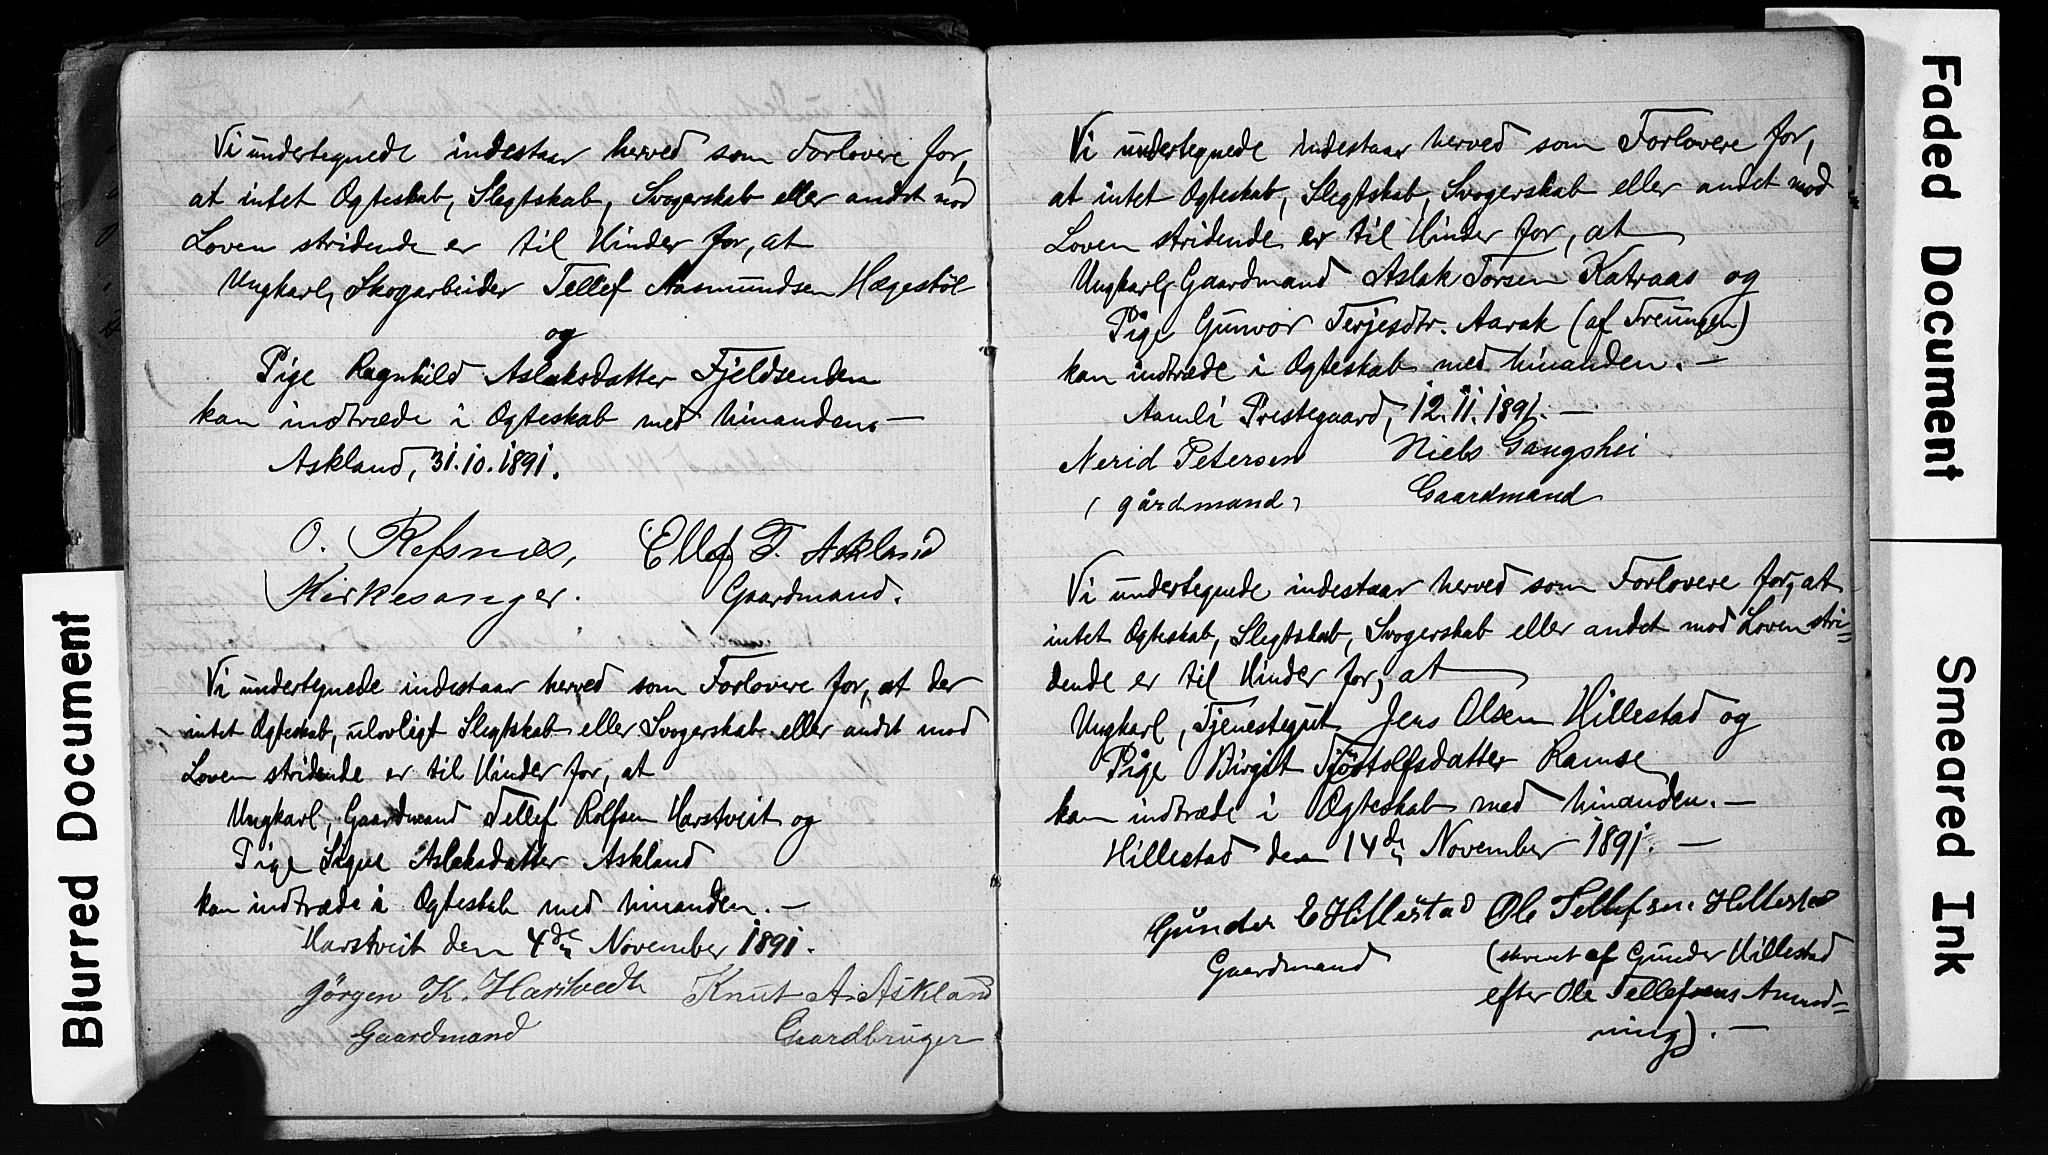 Vi undertegnede indestaar herved som Forlovere for,
at intet Ægteskab, Slegtskab, Svogerskab eller andet mod
Loven stridende er til Hinder for, at
Ungkarl, Skogarbeider Tellef Aasmundsen Hægestöl
og
Pige Ragnhild Aslaksdatter Fjeldsenden
kan indtræde i Ægteskab med hinanden. —
Askland, 31.10.1891.
O. Refsnes, Ellef T. Askland
Kirkesanger. Gaardmand.
Vi undertegnede indestaar herved som Forlovere for, at der
intet Ægteskab, ulovligt Slegtskab eller Svogerskab eller andet mod
Loven stridende er til Hinder for, at
Ungkarl, Gaardmand Tellef Rolfsen Harstveit og
Pige Signe Aslaksdatter Askland
kan indtræde i Ægteskab med hinanden. —
Harstveit den 4de November 1891.
Jørgen K. Harstvedt Knut A. Askland
Gaardmand Gaardbruger
Vi undertegnede indestaar herved som Forlovere for,
at intet Ægteskab, Slegtskab, Svogerskab eller andet mod
Loven stridende er til Hinder for, at
Ungkarl, Gaardmand Aslak Torsen Katraas og
Pige Gunvor Terjesdtr. Aarak (af Treungen)
kan indtræde i Ægteskab med hinanden. —
Aamli Prestegaard, 12.11.1891. —
Nerid Petersen Niels Gangshei
(gårdmand) Gaardmand
Vi undertegnede indestaar herved som Forlovere for, at
intet Ægteskab, Slegtskab, Svogerskab eller andet mod Loven stri=
dende er til Hinder for, at
Ungkarl, Tjenestegut Jens Olsen Hillestad og
Pige Birgit Tjöstolfsdatter Ramse
kan indtræde i Ægteskab med hinanden. —
Hillestad den 14de November 1891. —
Gunder E Hillestad Ole Tellefsen Hillestad
Gaardmand (skrevet af Gunder Hillestad
efter Ole Tellefsens Anmod=
ning). —
Blurred Document
Faded Document
Smeared Ink